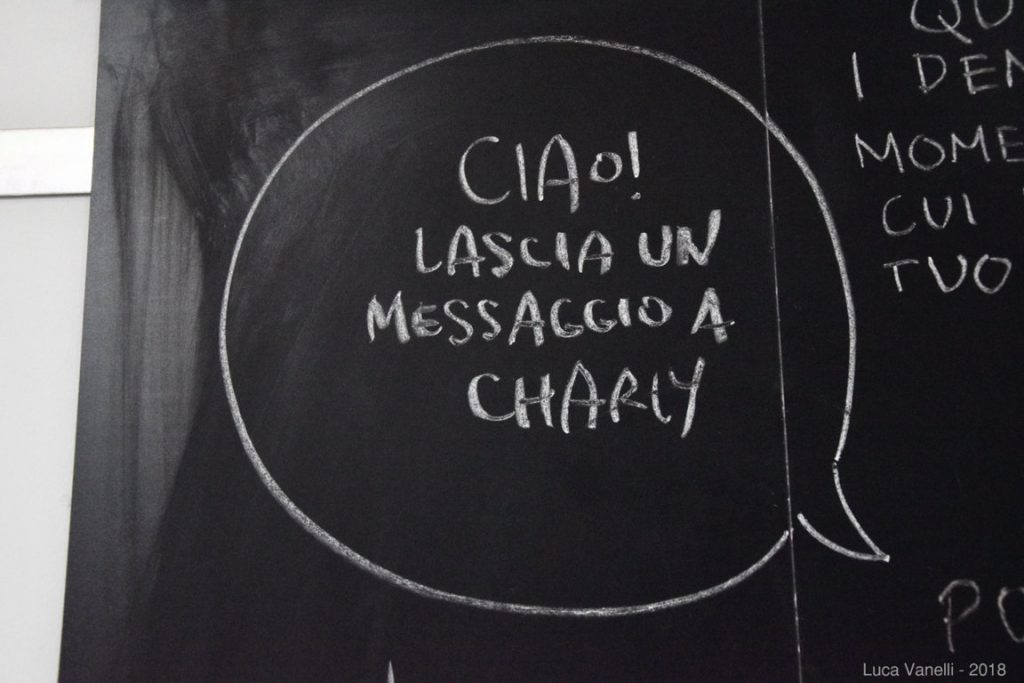 CIAO!
LASCIA UN
MESSAGGIO A
CHARLY
I
MOME
CUI
TUO
PO
Luca Vanelli - 2018